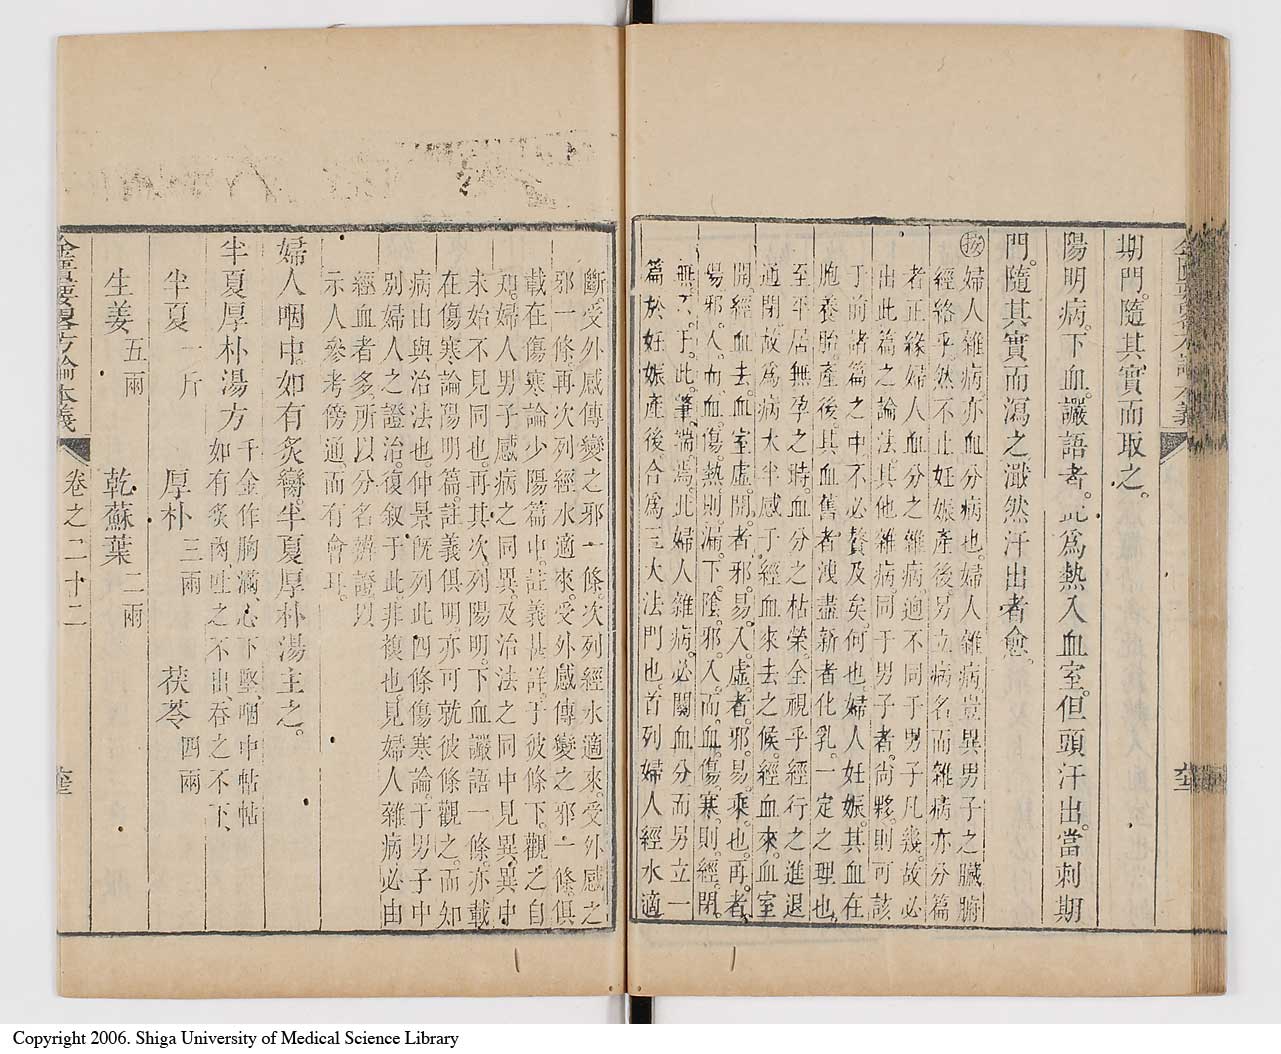 期門。隨其實而取之。
陽明病。下血讝語者。此爲熱入血室。但頭汗出。當刺期
門。隨其實而瀉之。濈然汗出者愈。
按婦人雜病。亦血分病也。婦人雜病。豈異男子之臟腑
經絡乎。然不止妊娠產後。另立病名。而雜病亦分篇
者。正緣婦人血分之雜病。迥不同于男子凡幾。故必
出此篇之論法。其他雜病。同于男子者。尙夥。則可該
于前諸篇之中。不必贅及矣。何也。婦人妊娠。其血在
胞養胎。產後。其血舊者洩盡。新者化乳。一定之理也。
至平居無孕之時。血分之枯榮。全視乎經行之進退
通閉。故爲病大半感于經血來去之候。經血來。血室
開。經血去。血室虛。開者邪易入。虛者邪易乘也。再者
陽邪入而血傷熱。則漏下。陰邪入而血傷寒。則經閉。
無不于此肇端焉。此婦人雜病。必關血分。而另立一
篇。於妊娠產後合爲三大法門也。首列婦人經水適
斷。受外感傳變之邪一條。次列經水適來。受外感之
邪一條。再次列經水適來。受外感傳變之邪一條。俱
載在傷寒論少陽篇中。註義甚詳于彼條下。觀之自
知。婦人男子感病之同異。及治法之同中見異。異中
未始不見同也。再其次。列陽明。下血讝語一條。亦載
在傷寒論陽明篇。註義俱明。亦可就彼條觀之。而知
病由與治法也。仲景旣列此四條傷寒論。于男子中
別婦人之證治。復叙于此。非複也。見婦人雜病必由
經血者多。所以分名辨證。以
示人參考傍通。而有會耳。
婦人咽中如有炙臠。半夏厚朴湯主之。
半夏厚朴湯方 千金作胸滿。心下堅。咽中帖帖
如有炙肉。吐之不出。吞之不下。
半夏一斤 厚朴三兩 茯苓四兩
生姜五兩 乾蘇葉二兩
金匱要略方論本義 卷之二十二
Copyright 2006. Shiga University of Medical Science Library